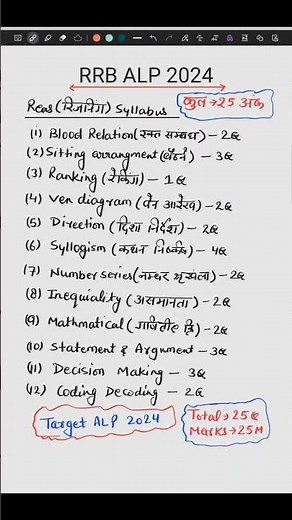 RRB ALP 2024
Reas (रिजनिंग) Syllabus
कुल → 25 अंक
(1) Blood Relation (रक्त सम्बन्ध) - 2Q
(2) Sitting arrangment (बैठने) - 3Q
(3) Ranking (रैंकिंग) - 1Q
(4) Ven diagram (वेन आरेख) - 2Q
(5) Direction (दिशा निर्देश) - 2Q
(6) Syllogism (कथन निष्कर्ष) - 4Q
(7) Number series (नम्बर श्रृंखला) - 2Q
(8) Inequiality (असमानता) - 2Q
(9) Mathmatical (गणितीय) - 2Q
(10) Statement & Argnment - 3Q
(11) Decision Making - 3Q
(12) Coding Decoding - 2Q
Target ALP 2024
Total → 25Q
Marks → 25M